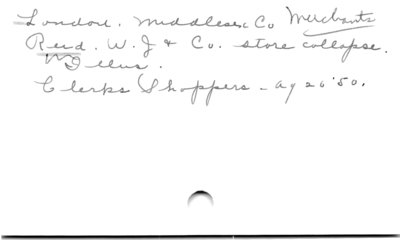 London. Middlesex Co Merchants
Reid. W. J & Co. store collapse.
Clerks Shoppers - Ag 26 '50.